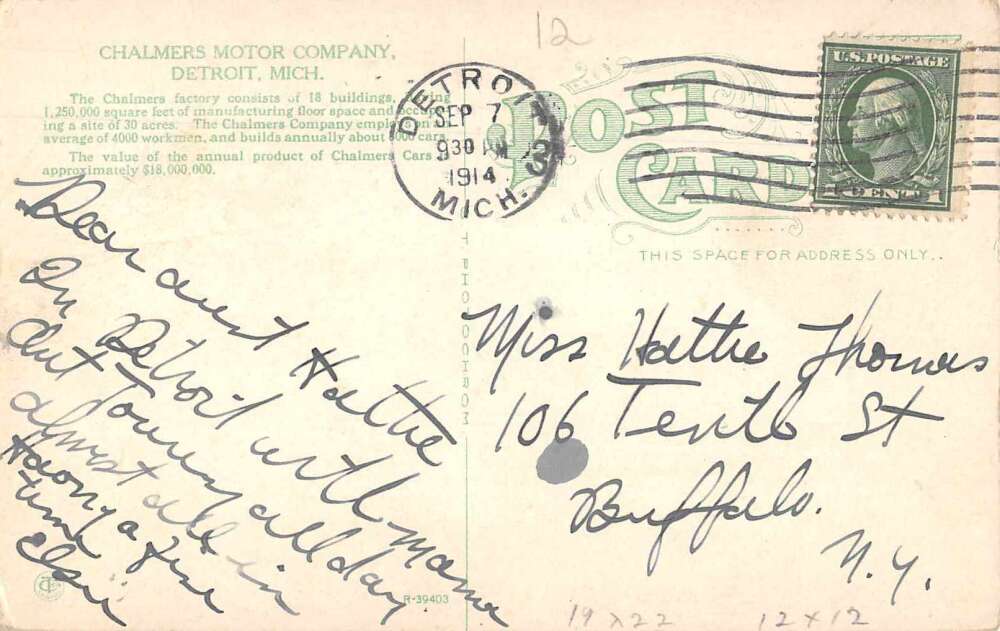 CHALMERS MOTOR COMPANY,
DETROIT, MICH.
The Chalmers factory consists of 18 buildings,
1,250,000 square feet of manufacturing floor space and occupy-
ing a site of 30 acres. The Chalmers Company employs on
average of 4000 workmen, and builds annually about cars.
The value of the annual product of Chalmers Cars
approximately $18,000,000.
12
DETROIT
SEP 7
930 PM
1914
MICH.
U.S. POSTAGE
POST
CARD
THIS SPACE FOR ADDRESS ONLY..
Dear aunt Hattie
In Detroit with mama
Out Touring all day
almost all in
Having a fine
time
R-39403
Miss Hattie Thomas
106 Tenth St
Buffalo.
N.Y.
19 x 22
12 x 12